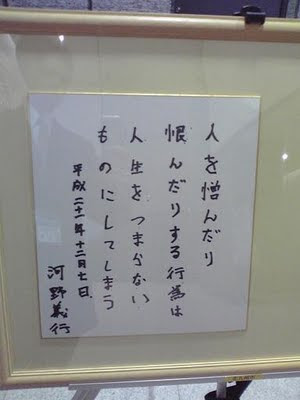 人を憎んだり
恨んだりする行為は
人生をつまらない
ものにしてしまう
平成二十一年十二月七日
河野義行